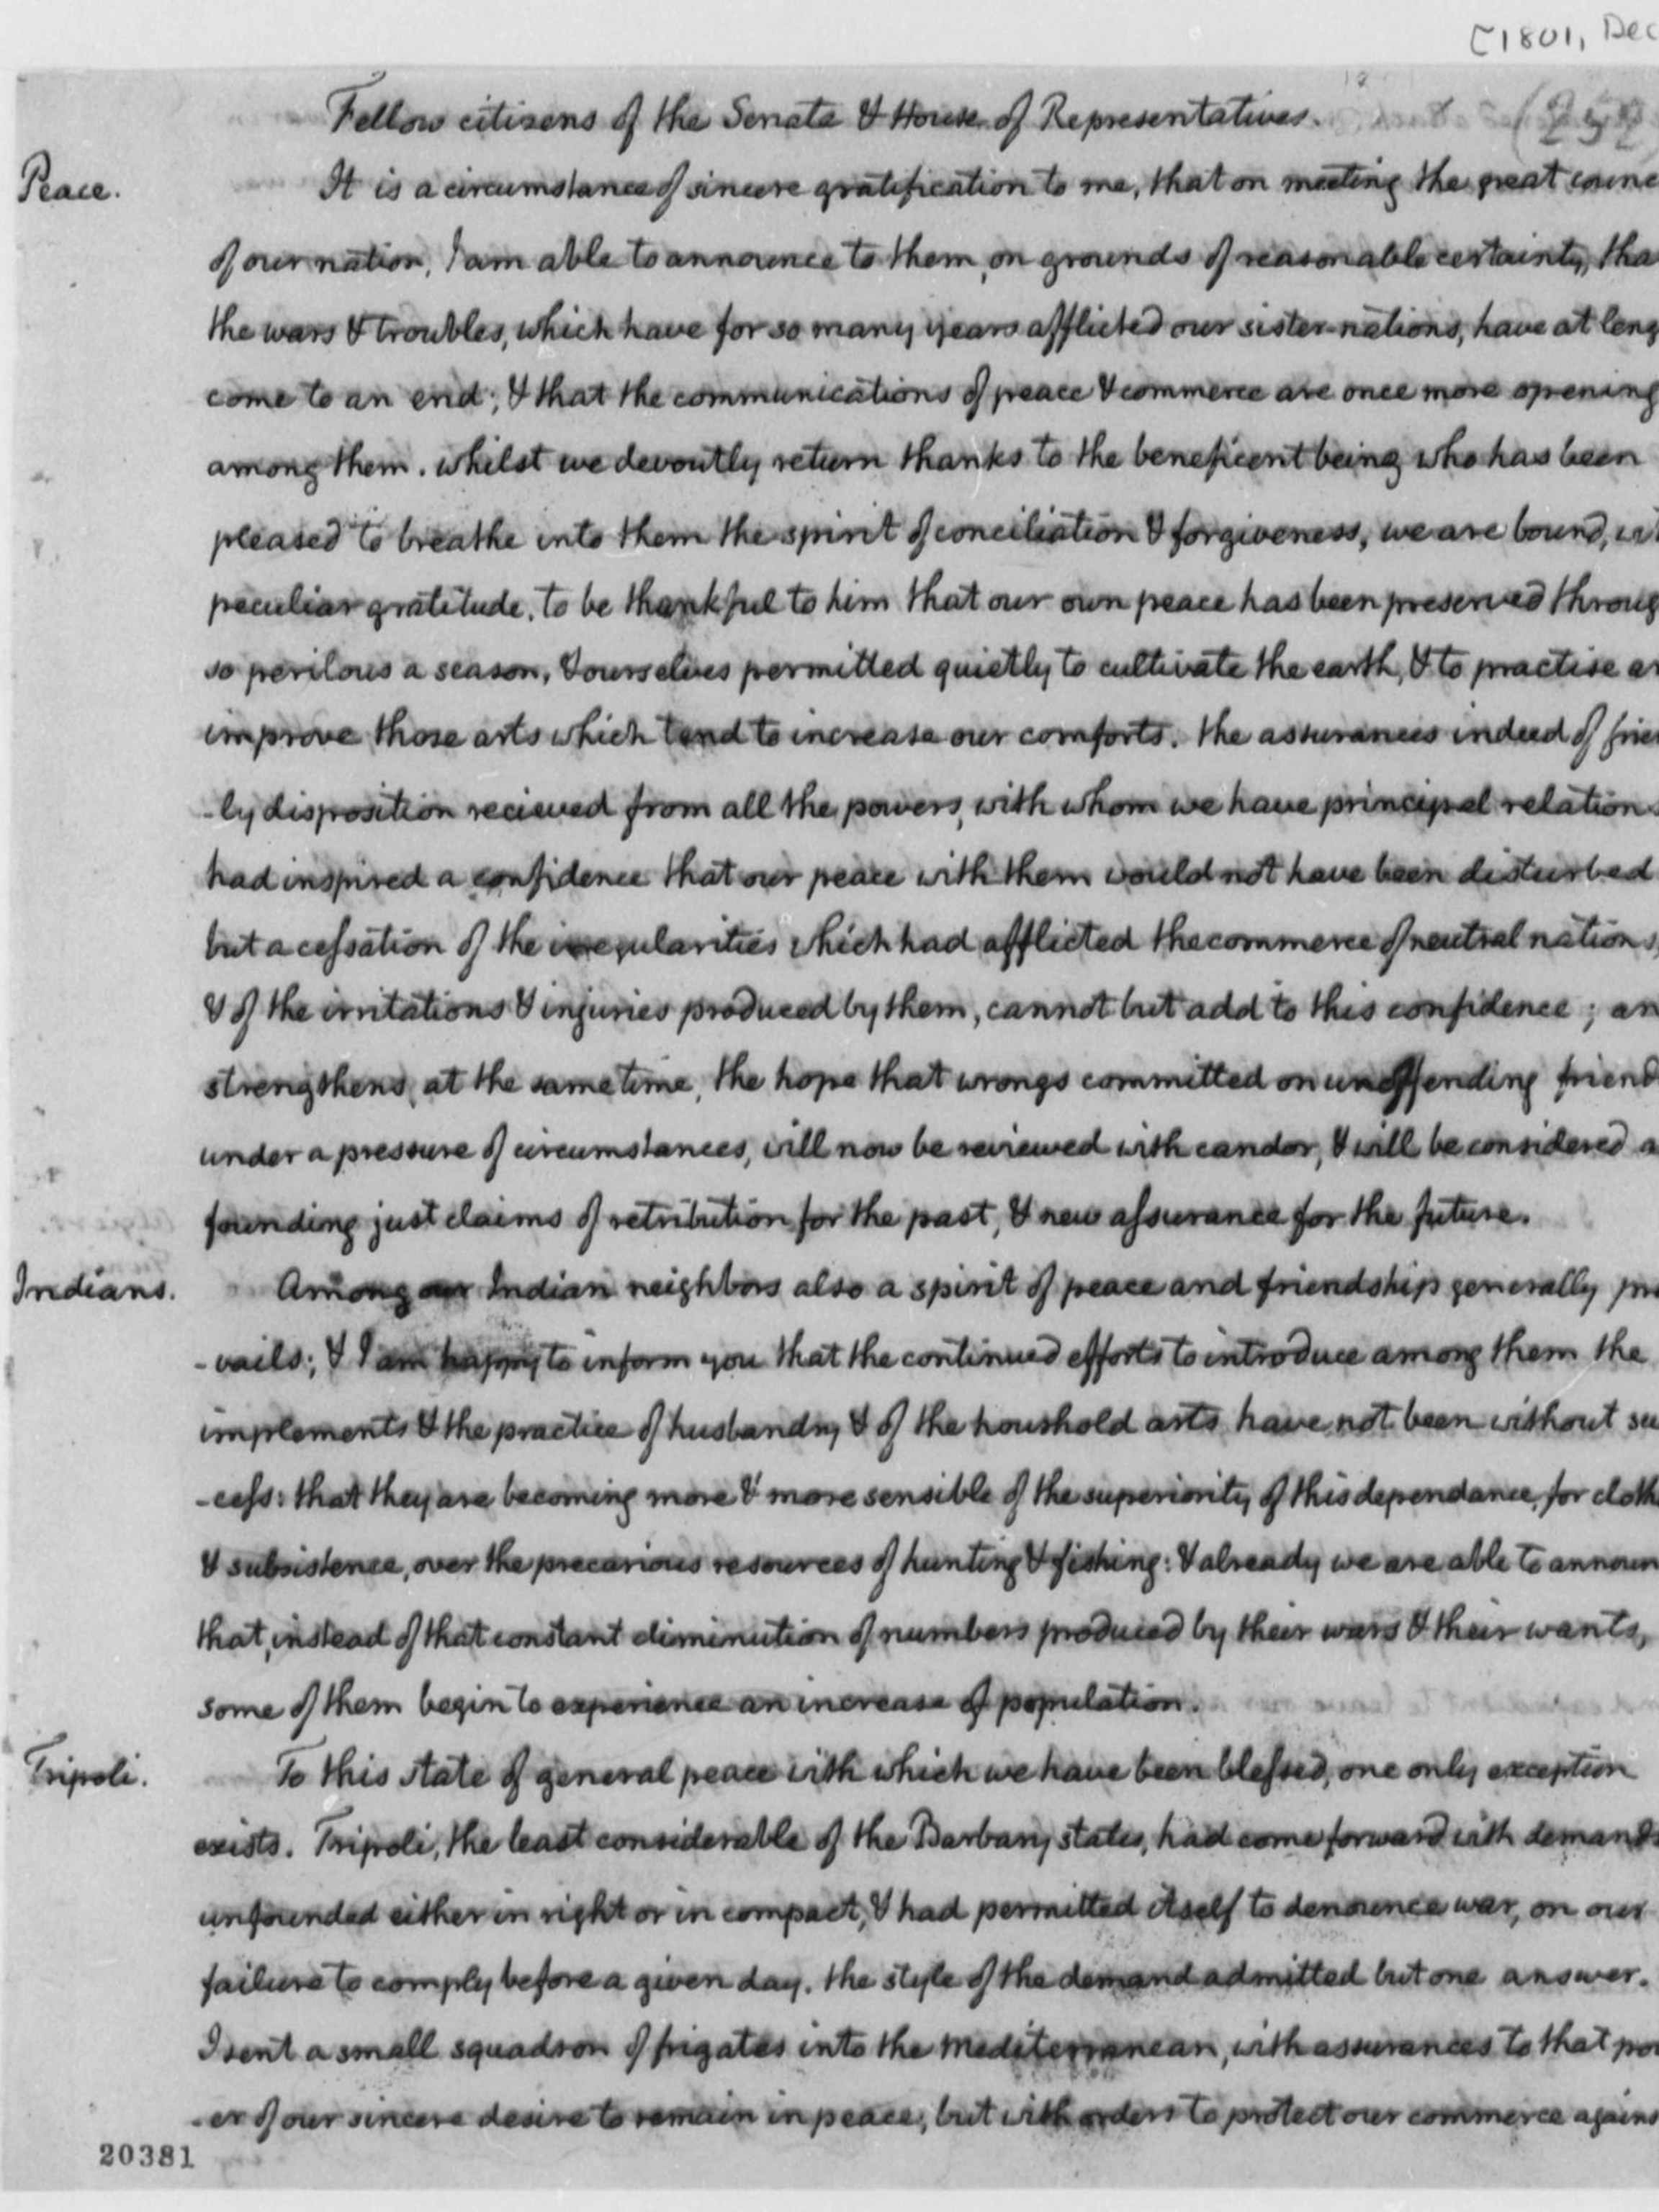 [1801, Dec
Fellow citizens of the Senate & House of Representatives.
Peace.
It is a circumstance of sincere gratification to me, that on meeting the great counc
of our nation, I am able to announce to them, on grounds of reasonable certainty, tha
the wars & troubles, which have for so many years afflicted our sister-nations, have at leng
come to an end; & that the communications of peace & commerce are once more opening
among them. whilst we devoutly return thanks to the beneficent being who has been
pleased to breathe into them the spirit of conciliation & forgiveness, we are bound, wi
peculiar gratitude, to be thankful to him that our own peace has been preserved throug
so perilous a season, & ourselves permitted quietly to cultivate the earth, & to practise an
improve those arts which tend to increase our comforts. the assurances indeed of frien
-ly disposition recieved from all the powers, with whom we have principal relations
had inspired a confidence that our peace with them would not have been disturbed
but a cessation of the irregularities which had afflicted the commerce of neutral nations,
& of the irritations & injuries produced by them, cannot but add to this confidence; an
strengthens, at the same time, the hope that wrongs committed on unoffending friend
under a pressure of circumstances, will now be reviewed with candor, & will be considered a
founding just claims of retribution for the past, & new assurance for the future.
Indians.
Among our Indian neighbors also a spirit of peace and friendship generally pre
-vails; & I am happy to inform you that the continued efforts to introduce among them the
implements & the practice of husbandry & of the houshold arts have not been without suc
-cess: that they are becoming more & more sensible of the superiority of this dependance, for cloth
& subsistence, over the precarious resources of hunting & fishing: & already we are able to announ
that, instead of that constant diminution of numbers produced by their wars & their wants,
some of them begin to experience an increase of population.
Tripoli.
To this state of general peace with which we have been blessed, one only exception
exists. Tripoli, the least considerable of the Barbary states, had come forward with demands
unfounded either in right or in compact, & had permitted itself to denounce war, on our
failure to comply before a given day. the style of the demand admitted but one answer.
I sent a small squadron of frigates into the Mediterranean, with assurances to that pow
-er of our sincere desire to remain in peace; but with orders to protect our commerce agains
20381